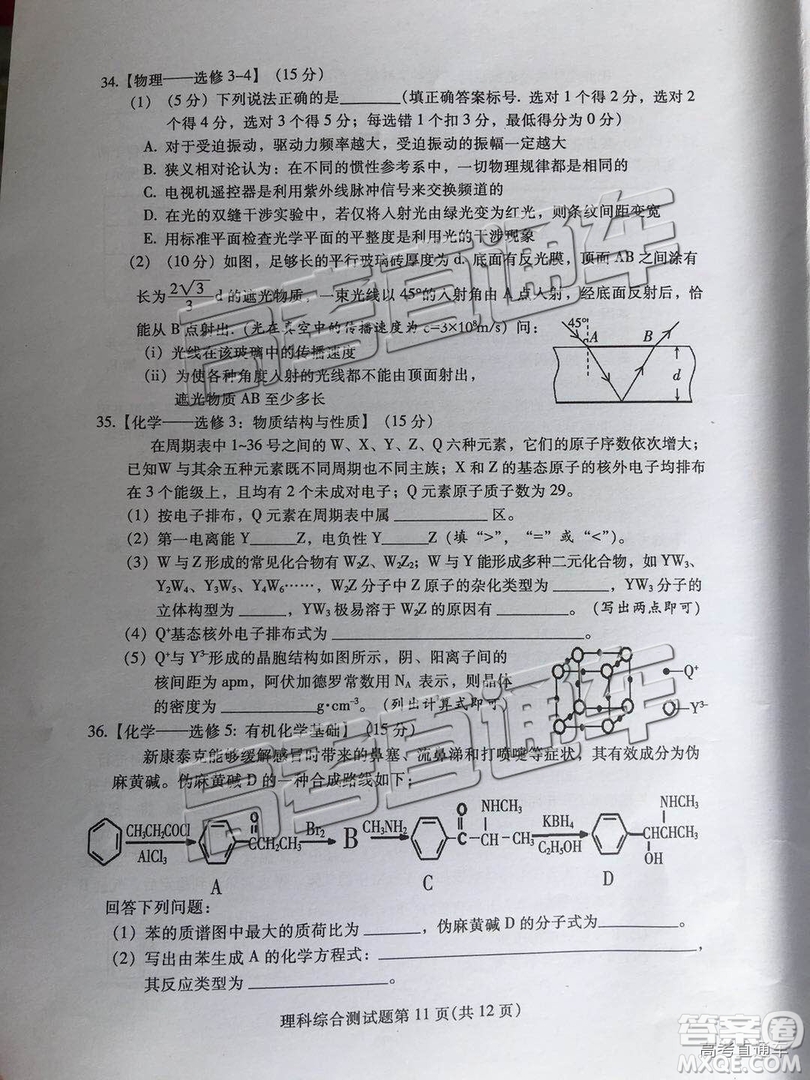 34.【物理——选修 3-4】(15 分)
(1) (5 分) 下列说法正确的是______(填正确答案标号. 选对 1 个得 2 分, 选对 2
个得 4 分, 选对 3 个得 5 分; 每选错 1 个扣 3 分, 最低得分为 0 分)
A. 对于受迫振动, 驱动力频率越大, 受迫振动的振幅一定越大
B. 狭义相对论认为: 在不同的惯性参考系中, 一切物理规律都是相同的
C. 电视机遥控器是利用紫外线脉冲信号来变换频道的
D. 在光的双缝干涉实验中, 若仅将入射光由绿光变为红光, 则条纹间距变宽
E. 用标准平面检查光学平面的平整度是利用光的干涉现象
(2) (10 分) 如图, 足够长的平行玻璃砖厚度为 d. 底面有反光膜, 顶面 AB 之间涂有
长为 2√3/3 d 的遮光物质, 一束光线以 45°的入射角由 A 点入射, 经底面反射后, 恰
能从 B 点射出. (光在真空中的传播速度为 c=3×10⁸m/s) 问:
(i) 光线在该玻璃中的传播速度
(ii) 为使各种角度入射的光线都不能由顶面射出,
遮光物质 AB 至少多长
45°
A
B
d
35.【化学——选修 3: 物质结构与性质】(15 分)
在周期表中 1~36 号之间的 W、X、Y、Z、Q 六种元素, 它们的原子序数依次增大;
已知W 与其余五种元素既不同周期也不同主族; X 和 Z 的基态原子的核外电子均排布
在 3 个能级上, 且均有 2 个未成对电子; Q 元素原子质子数为 29。
(1) 按电子排布, Q 元素在周期表中属 __________ 区。
(2) 第一电离能 Y_____Z, 电负性 Y_____Z (填 “>”, “=” 或 “<”)。
(3) W 与 Z 形成的常见化合物有 W₂Z、W₂Z₂; W 与 Y 能形成多种二元化合物, 如 YW₃、
Y₂W₄、Y₃W₅、Y₄W₆……, W₂Z 分子中 Z 原子的杂化类型为 ______, YW₃ 分子的
立体构型为 ______, YW₃ 极易溶于 W₂Z 的原因有 ________。(写出两点即可)
(4) Q⁺基态核外电子排布式为 ____________________。
(5) Q⁺与 Y³⁻形成的晶胞结构如图所示, 阴、阳离子间的
核间距为 apm, 阿伏加德罗常数用 Nₐ 表示, 则晶体
的密度为 ________g·cm⁻³。(列出计算式即可)
Q⁺
Y³⁻
36.【化学——选修 5: 有机化学基础】(15 分)
新康泰克能够缓解感冒时带来的鼻塞、流鼻涕和打喷嚏等症状, 其有效成分为伪
麻黄碱。伪麻黄碱 D 的一种合成路线如下:
CH₃CH₂COCl
AlCl₃
O
CCH₂CH₃
A
Br₂
B
CH₃NH₂
O NHCH₃
C-CH-CH₃
C
KBH₄
C₂H₅OH
NHCH₃
CHCHCH₃
OH
D
回答下列问题:
(1) 苯的质谱图中最大的质荷比为 ______, 伪麻黄碱 D 的分子式为________。
(2) 写出由苯生成 A 的化学方程式: ______________________________,
其反应类型为 ____________。
理科综合测试题第 11 页(共 12 页)
高考直通车
高考直通车
高考直通车
答案圈
MXQE.COM